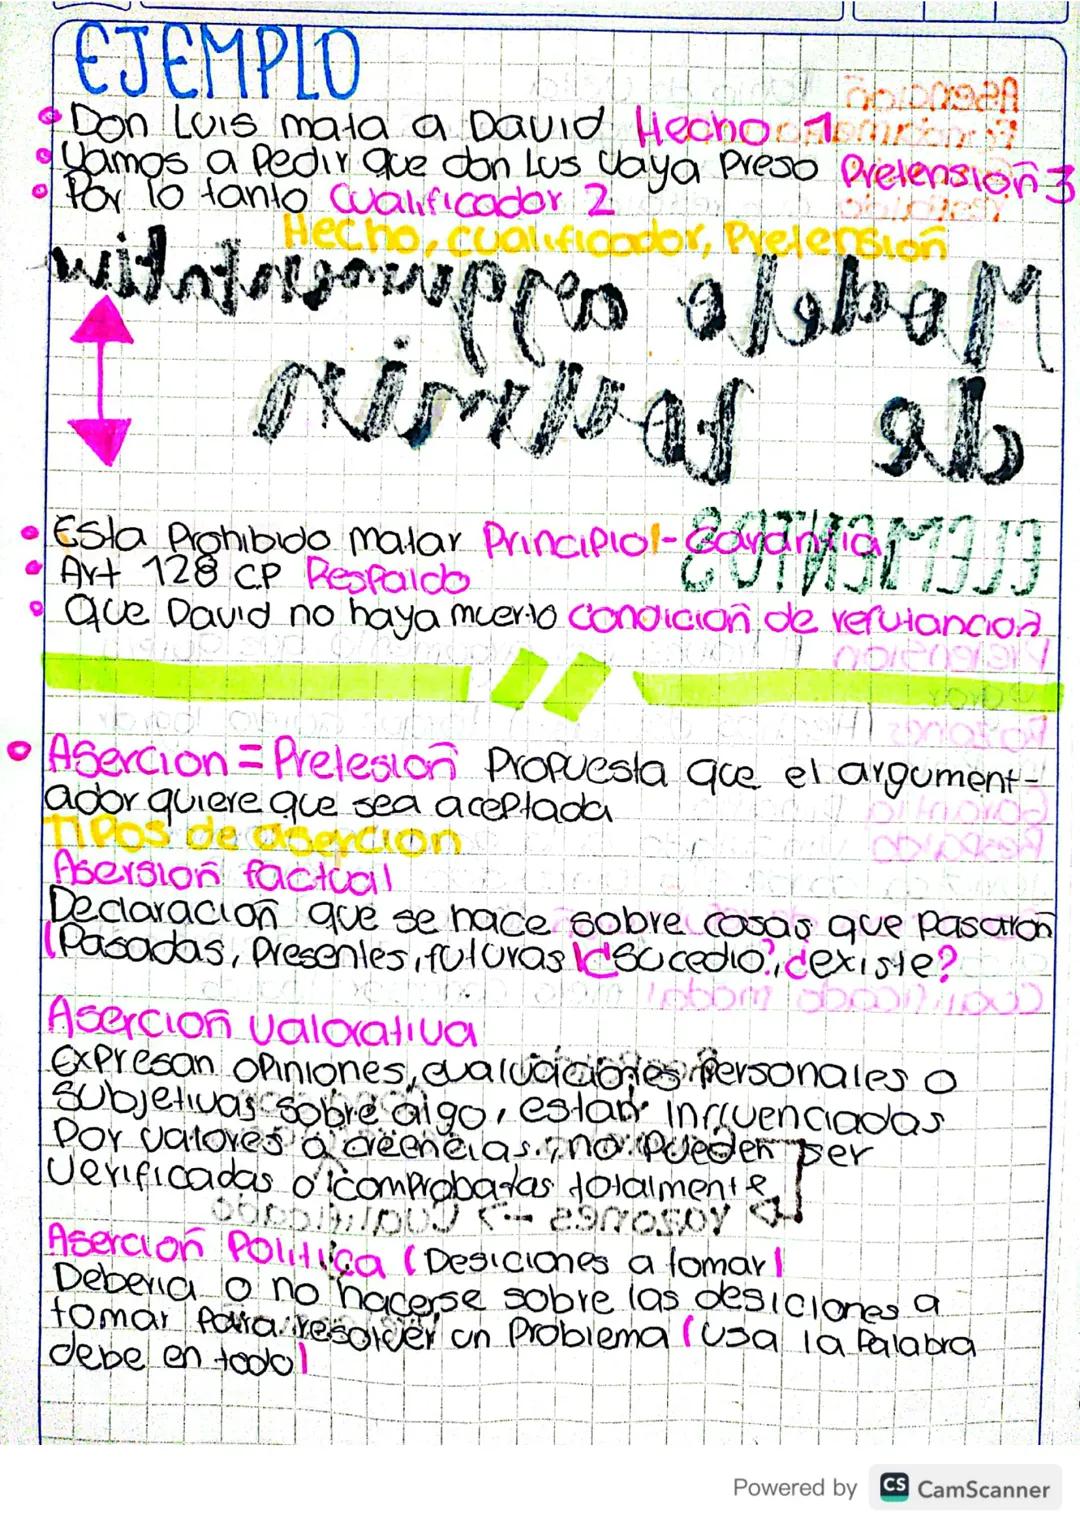 EJEMPLO
Don Luis mata a David Hecho 1
Vamos a Pedir que don Lus Vaya Preso Pretensioñ 3
Por lo tanto Cualificador 2
Hecho, cualificador, Pretension
Esta Prohibido Matar Principio - Garantia
Art 128 C.P Respaldo
Que David no haya muerto condicioñ de refutancion
Asercion = Pretesioñ Propuesta que el argument-
ador quiere que sea aceptada
Tipos de asercion
Asersioñ factual
Declaracioñ que se hace sobre cosas que pasaroñ
(Pasadas, Presentes, futuras ¿Sucedio?, ¿existe?
Asercioñ valorativa
Expresan opiniones, evaluaciones Personales o
subjetivas sobre algo, estan influenciadas
Por valores o creencias, no Pueden ser
verificadas o comprobatas totalmente
Asercioñ Politica (Desiciones a tomar)
Deberia o no hacerse sobre las desiciones a
tomar Para resolver un Problema (Usa la Palabra
debe en todo)
Powered by CS CamScanner